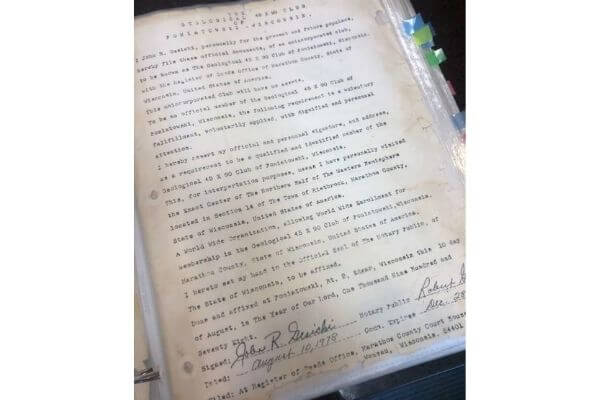 GEOLOGICAL 45 X 90 CLUB
OF
PONIATOWSKI, WISCONSIN.
I John R. Gesicki, personally for the present and future populace,
hereby file these official documents, of an unincorporated club,
to be known as The Geological 45 X 90 Club of Poniatowski, Wisconsin,
with the Register of Deeds office of Marathon County, State of
Wisconsin, United States of America.
This unincorporated Club will have no assets.
To be an official member of the Geological 45 X 90 Club of
Poniatowski, Wisconsin, the following requirement is a voluntary
fulfillment, voluntarily applied, with dignified and personal
attention.
I hereby insert my official and personal signature, and address,
as a requirement to be a qualified and identified member of the
Geological 45 X 90 Club of Poniatowski, Wisconsin.
This, for interpertation purposes, means I have personally visited
the Exact Center of The Northern Half of The Western Hemisphere
located in Section 14 of The Town of Rietbrock, Marathon County,
State of Wisconsin, United States of America.
A World Wide Organization, allowing World Wide Enrollment for
Membership in the Geological 45 X 90 Club of Poniatowski, Wisconsin.
Marathon County, State of Wisconsin, United States of America.
I hereto set my hand to the official Seal of The Notary Public, of
The State of Wisconsin, to be affixed.
Done and Affixed at Poniatowski, Rt. 2, Edgar, Wisconsin this 10 day
of August, in The Year of Our Lord, One Thousand Nine Hundred and
Seventy Eight.
Signed: John R. Gesicki Notary Public Robert
Dated: August 10, 1978 Comm. Expires Dec. 28
Filed: At Register of Deeds Office, Marathon County Court House
Wausau, Wisconsin, 54401